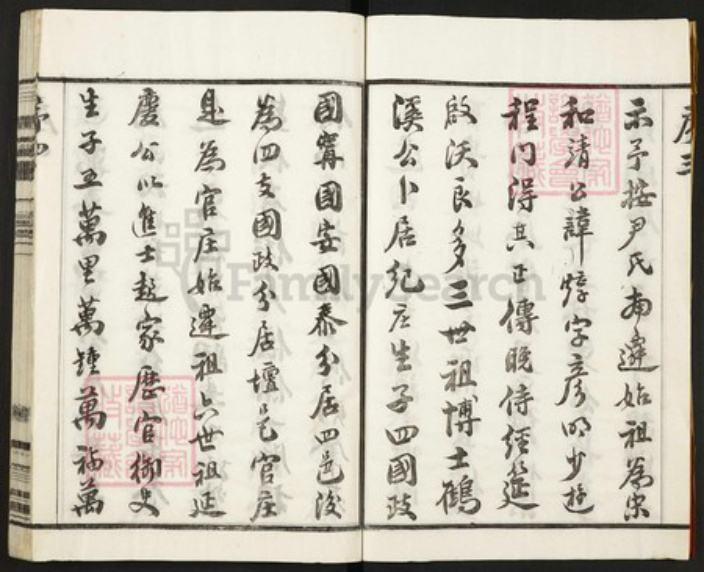 序三
示予按尹氏南遷始祖為宋
和靖公諱焞字彥明少游
程門得其正傳晚侍經筵
啟沃良多三世祖博士鶴
溪公卜居紀庄生子四國政
國甯國安國泰分居四邑後
為四支國政分居壇邑官庄
是為官庄始遷祖六世祖延
慶公以進士起家歷官御史
生子五萬里萬鍾萬福萬
序四
FamilySearch